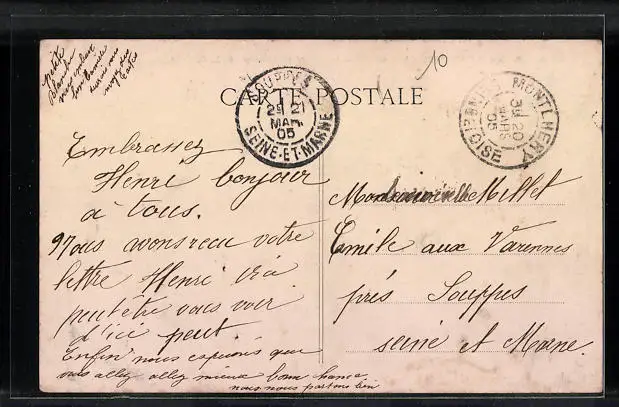 petite
Blanche
vous
nous
cartes
10
CARTE POSTALE
SOUPPES
2E 21
MAR
05
SEINE-ET-MARNE
MONTLHERY
3E 20
MARS
05
OISE
Embrassez
Henri bonjour
à tous.
Nous avons recu votre
lettre Henri ira
peut être vous voir
d'ici peut.
Enfin nous espérons que
vous allez allez mieux bonne chance
nous nous portons bien
Millet
Emile aux Varennes
près Souppes
seine et Marne.